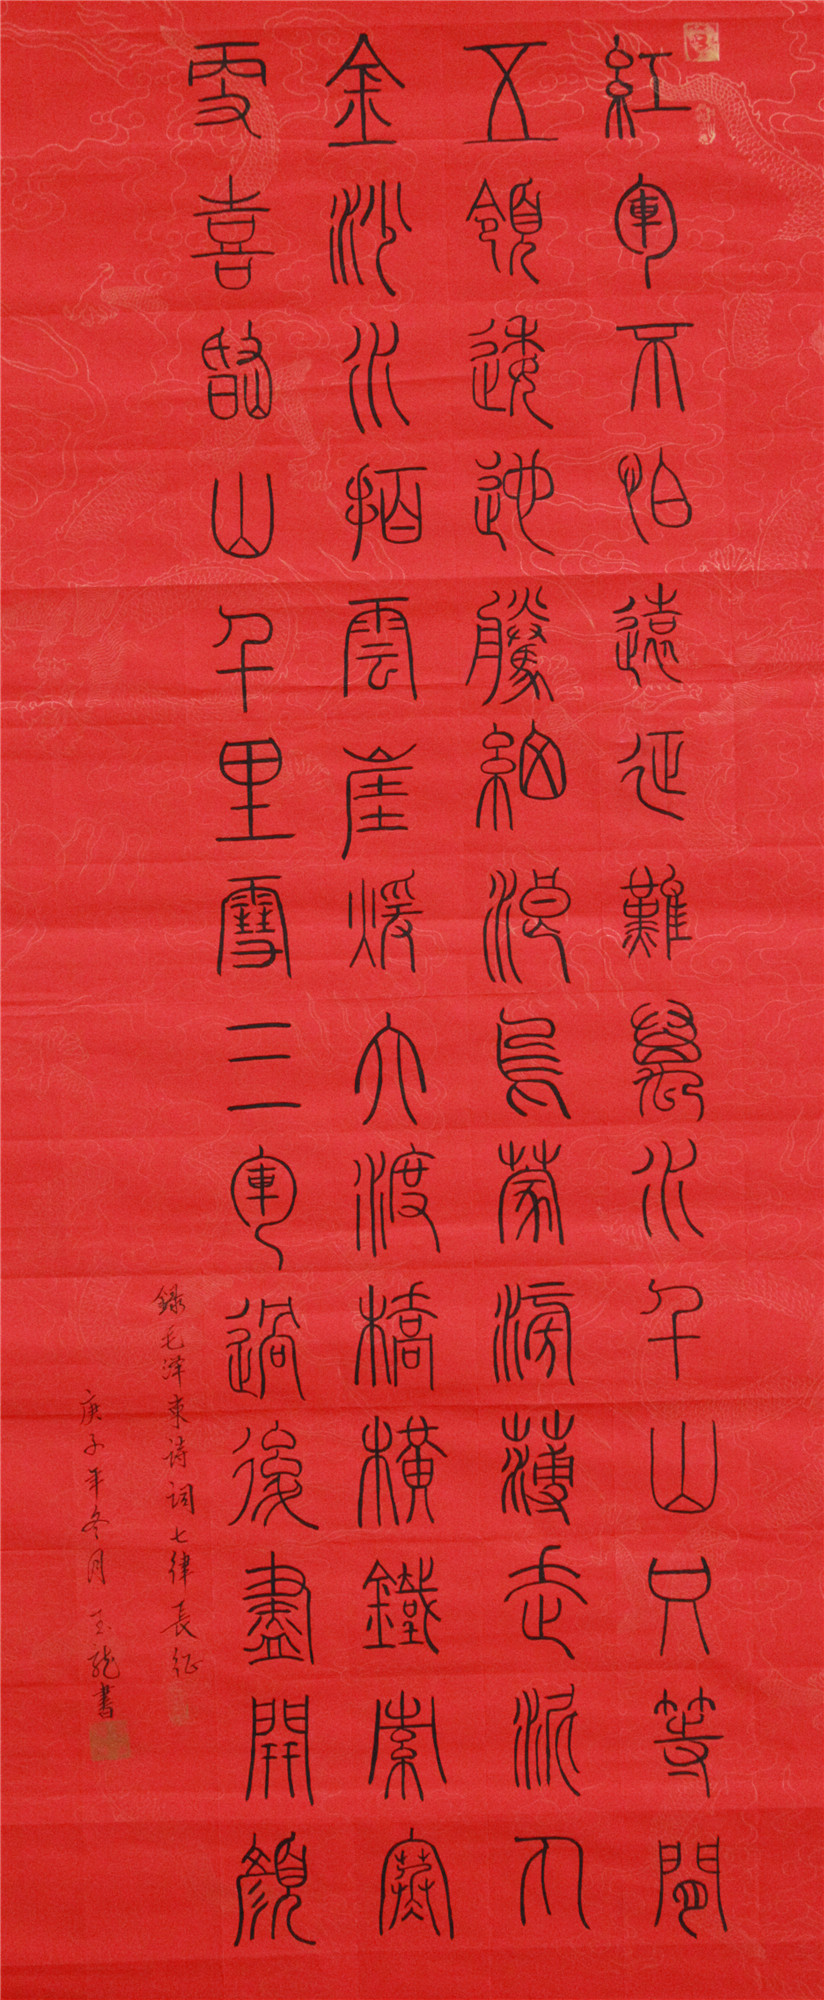 紅軍不怕遠征難萬水千山只等閒
五領逶迤騰細浪烏蒙滂薄走泥丸
金沙水拍雲崖煖大渡橋橫鐵索寒
更喜岷山千里雪三軍過後盡開顏
錄毛泽東诗词七律長征
庚子年冬月 玉龍書